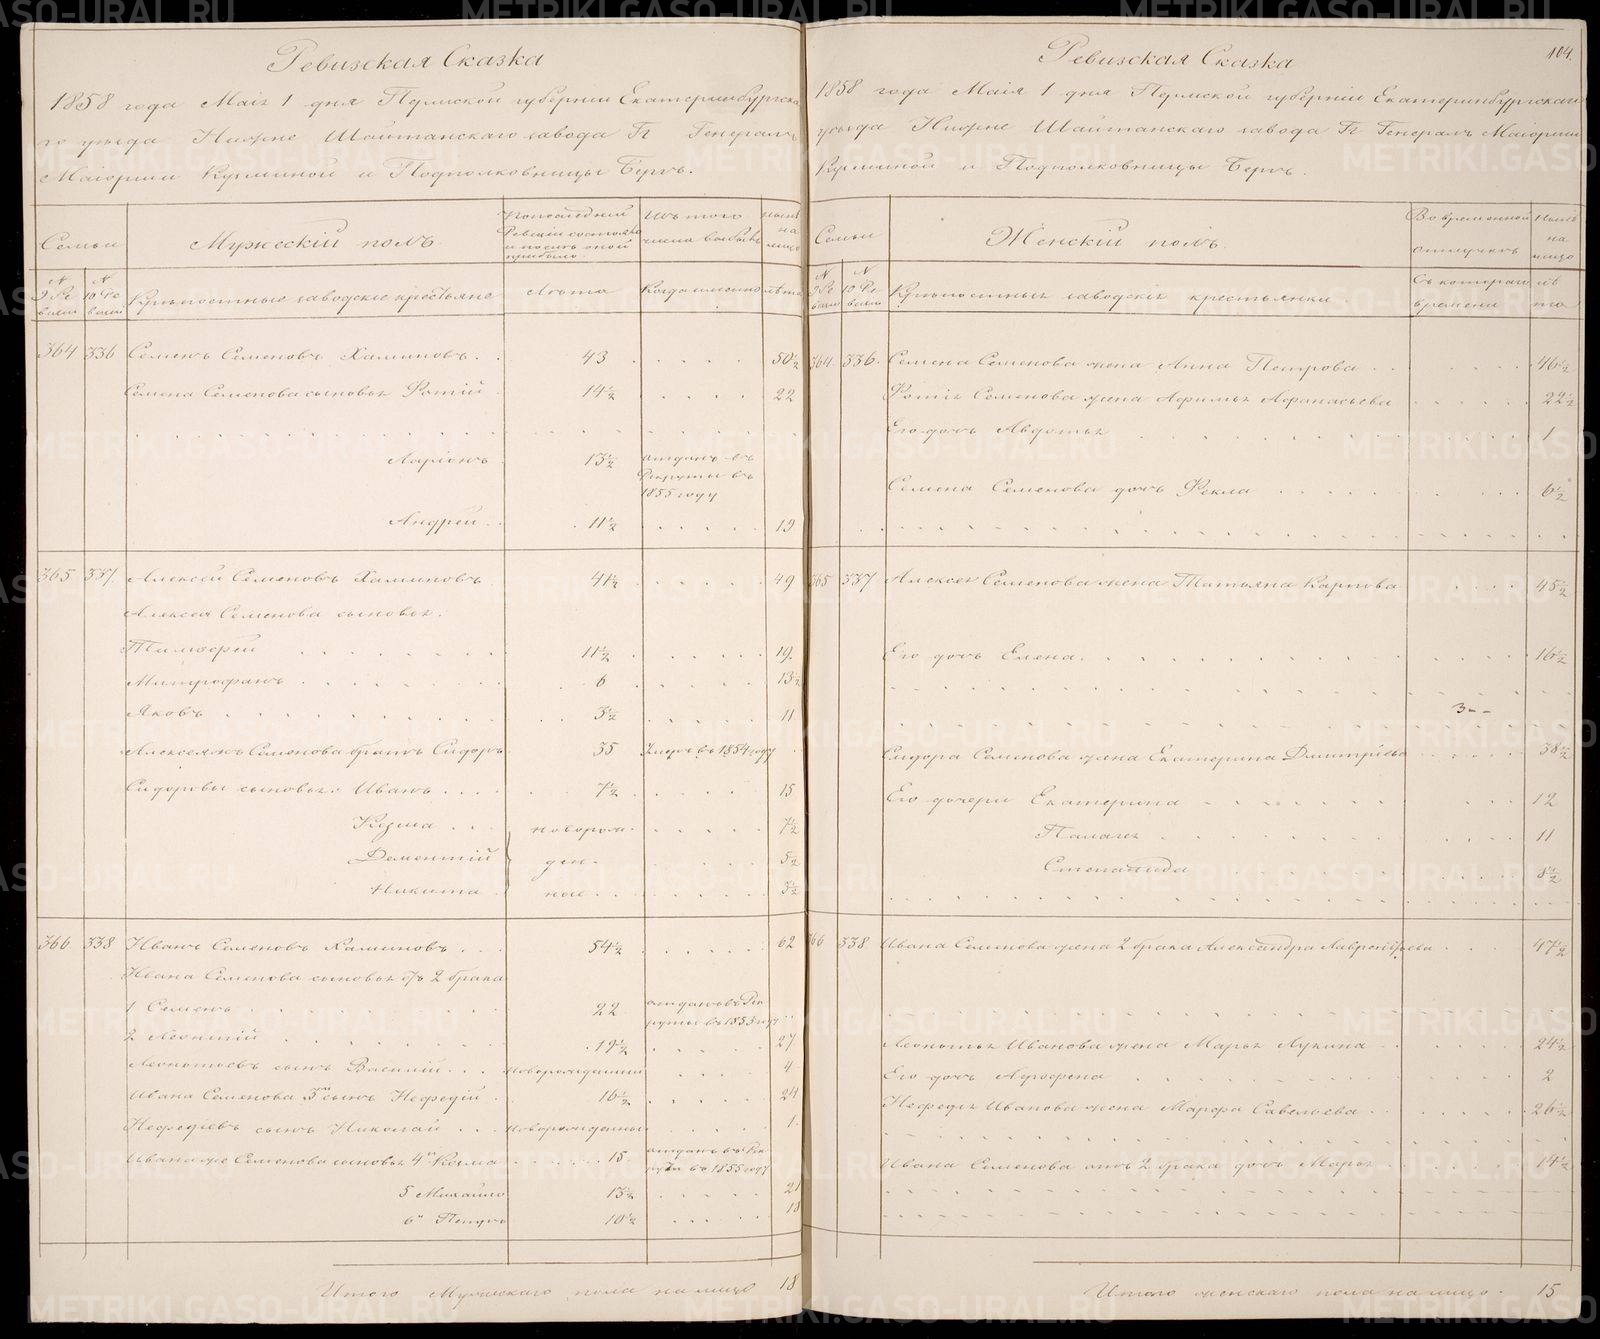 Ревизская Сказка
1858 года Маія 1 дня Пермской губерніи Екатеринбургска
го уезда Нижне Шайтанскаго завода Гг Генералъ
Маіорши Кузминой и Подполковницы Бергъ.
Семьи
Мужескій полъ.
По последней Ревизіи состояло и после оной прибыло.
Изъ того числа выбыло
Ныне на лицо
N 9 Ре визіи
N 10 Ре визіи
Крепостные заводскіе крестьяне
Лета
Когда именно
лета
364 336 Семенъ Семеновъ Халиповъ. 43 50½
Семена Семенова сыновья Фотій 14½ 22
13½ отданъ въ Рекруты въ 1855 году
Андрей 11½ 19
365 337 Алексей Семеновъ Халиповъ 41½ 49
Алексея Семенова сыновья:
Тимофей 11½ 19
Митрофанъ 6 13½
Яковъ 3½ 11
Семенова братъ Сидоръ 35 Умре въ 1854 году
Сидоровы сыновья: Иванъ 7½ 15
Козма новорож- 7½
Дементій ден- 5½
Никита ные 3½
366 338 Иванъ Семеновъ Халиповъ 54½ 62
Ивана Семенова сыновья отъ 2 брака
1 Семенъ 22 отданъ въ Рекруты въ 1855 году
2 Леонтій 19½ 27
Леонтьевъ сынъ Василій новорожденный 4
Ивана Семенова 3й сынъ Нефедій 16½ 24
Нефедіевъ сынъ Николай новорожденный 1
Ивана же Семенова сыновья 4й Козма 15 отданъ въ Рекруты въ 1855 году
5 Михайло 13½ 21
6й Петръ 10½ 18
Итого Мужескаго пола на лицо 18
104.
Ревизская Сказка
1858 года Маія 1 дня Пермской губерніи Екатеринбургскаго
уезда Нижне Шайтанскаго завода Гг Генералъ Маіорши
Кузминой и Подполковницы Бергъ.
Семьи
Женскій полъ.
Во временной отлучке
Ныне на лицо
N 9 Ре визіи
N 10 Ре визіи
Крепостныя заводскія крестьянки
Съ котораго времени
ле та
364 336 Семена Семенова жена Анна Петрова 46½
Фотія Семенова жена Афимья Афанасьева 22½
Его дочь Авдотья 1
Семена Семенова дочь Фекла 6½
365 337 Алексея Семенова жена Татьяна Карпова 45½
Его дочь Елена 16½
3--
Сидора Семенова жена Екатерина Дмитріева 38½
Его дочери Екатерина 12
Палагея 11
Степанида 8½
366 338 Ивана Семенова жена 2 брака Александра Лаврентьева 47½
Леонтья Иванова жена Марья Лукина 24½
Его дочь 2
Нефедья Иванова жена Марфа Савельева 26½
Ивана Семенова отъ 2 брака дочь Марья 14½
Итого женскаго пола на лицо. 15
METRIKI.GASO-URAL.RU